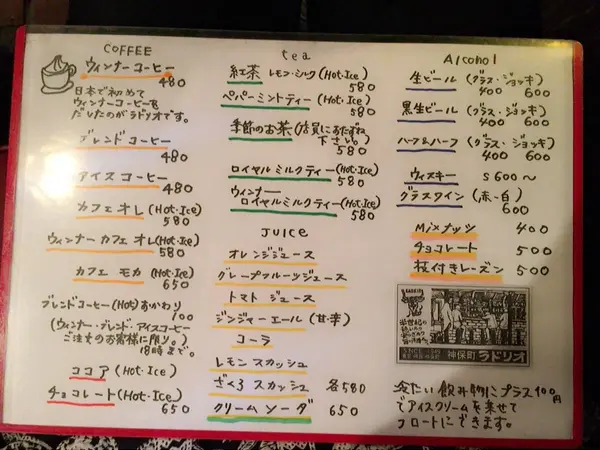 COFFEE
ウィンナーコーヒー
480
日本で初めて
ウィンナーコーヒーを
だしたのがラドリオです。
ブレンドコーヒー
480
アイスコーヒー
480
カフェオレ(Hot・Ice)
580
ウィンナーカフェオレ(Hot・Ice)
580
カフェモカ(Hot・Ice)
650
ブレンドコーヒー(Hot)おかわり
100
(ウィンナー・ブレンド・アイスコーヒー
ご注文のお客様に限り。)
18時まで。
ココア(Hot・Ice)
チョコレート(Hot・Ice)
650
tea
紅茶 レモン・ミルク(Hot・Ice)
580
ペパーミントティー(Hot・Ice)
580
季節のお茶(店員におたずね
下さい。)
580
ロイヤルミルクティー(Hot・Ice)
580
ウィンナー
ロイヤルミルクティー(Hot・Ice)
580
JUICE
オレンジジュース
グレープフルーツジュース
トマトジュース
ジンジャーエール(甘・辛)
コーラ
レモンスカッシュ
ざくろスカッシュ 各580
クリームソーダ 650
Alcohol
生ビール(グラス・ジョッキ)
400 600
黒生ビール(グラス・ジョッキ)
400 600
ハーフ&ハーフ(グラス・ジョッキ)
400 600
ウィスキー S600〜
グラスワイン(赤・白)
600
Mixナッツ 400
チョコレート 500
枝付きレーズン 500
神保町 ラドリオ
冷たい飲み物にプラス100円
でアイスクリームを乗せて
フロートにできます。